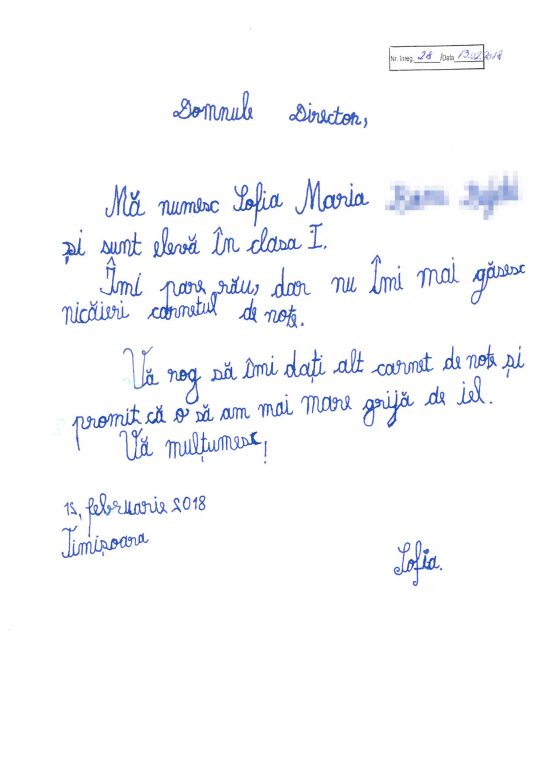 Nr. înreg. 28 /Data 13.02.2018
Domnule Director,
Mă numesc Sofia Maria
și sunt elevă în clasa I.
Îmi pare rău, dar nu îmi mai găsesc
nicăieri carnetul de note.
Vă rog să îmi dați alt carnet de note și
promit că o să am mai mare grijă de iel.
Vă mulțumesc!
12, februarie 2018
Timișoara
Sofia.